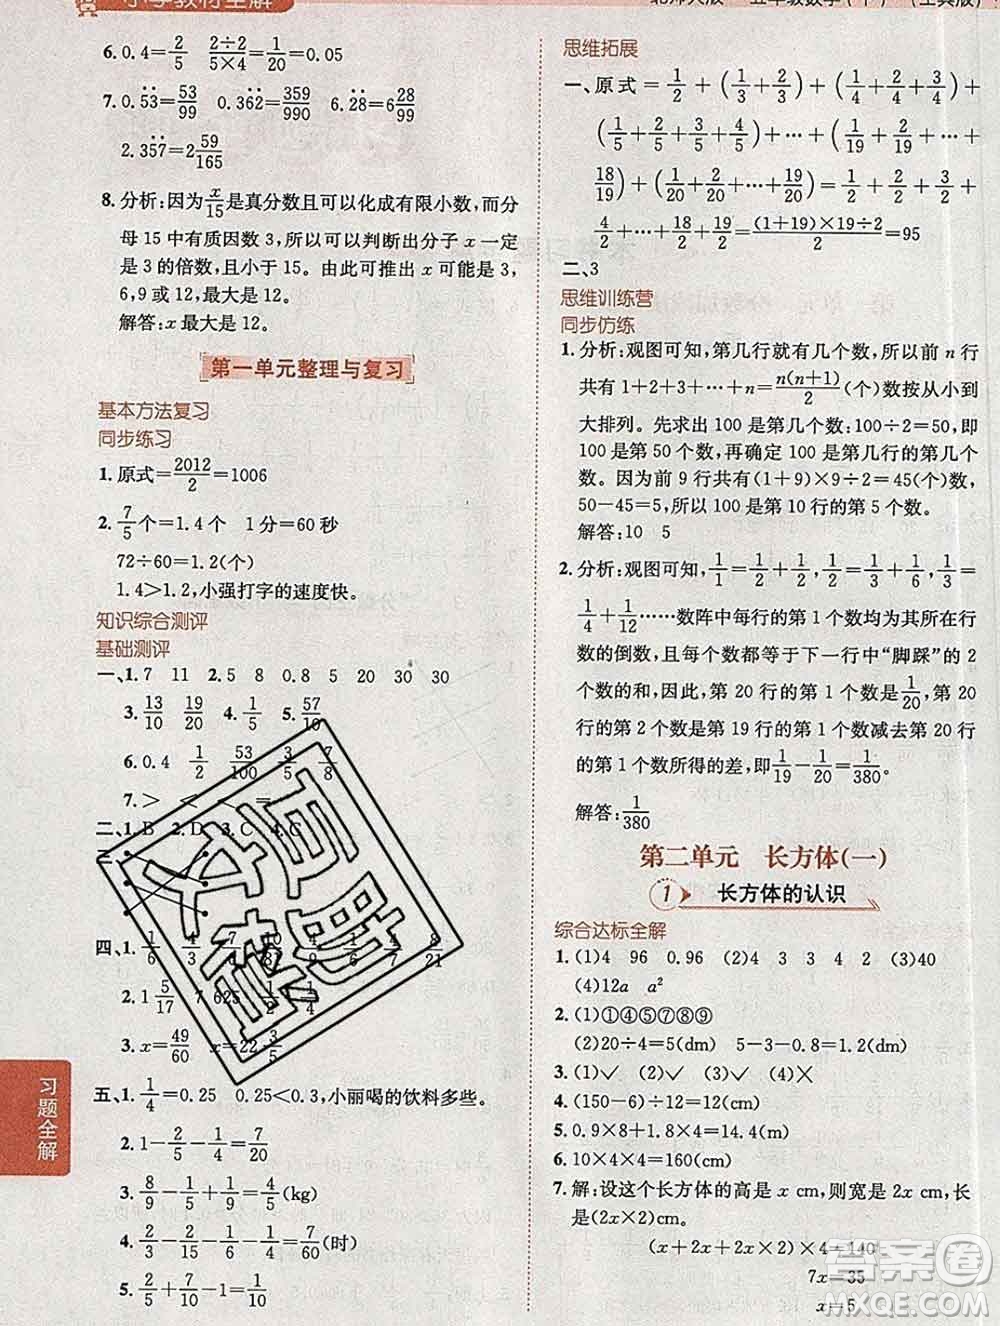 小学教材全解
北师大版 五年级数学(下) (工具版)
6. 0.4=2/5  (2÷2)/(5×4)=1/20=0.05
7. 0.5̇3̇=53/99  0.36̇2̇=359/990  6.2̇8̇=6 28/99
2.35̇7̇=2 59/165
8. 分析:因为x/15是真分数且可以化成有限小数,而分
母15中有质因数3,所以可以判断出分子x一定
是3的倍数,且小于15。由此可推出x可能是3,
6,9或12,最大是12。
解答:x最大是12。
第一单元整理与复习
基本方法复习
同步练习
1. 原式=2012/2=1006
2. 7/5个=1.4个  1分=60秒
72÷60=1.2(个)
1.4>1.2,小强打字的速度快。
知识综合测评
基础测评
一、1. 7  11  2. 5  8  0.8  5  20  30  30
3. 13/10  19/20  4. 1/5  5. 57/10
6. 0.4  1/2  53/100  3/5  7/8
7. >  <  =
二、1. B  2. D  3. C  4. C
三、
四、1. 1/6  4/3  8/21
2. 1 5/17  7  625  1/2  1/4
3. x=49/60  x=22 3/5
五、1. 1/4=0.25  0.25<0.3,小丽喝的饮料多些。
2. 1-2/5-1/4=7/20
3. 8/9-1/5+1/9=4/5(kg)
4. 4/5-1/3-1/4-1/10=7/60(时)
5. 1/2+2/5-9/10=0
习题全解
思维拓展
一、原式=1/2+(1/3+2/3)+(1/4+2/4+3/4)+
(1/5+2/5+3/5+4/5)+…+(1/19+2/19+…+
18/19)+(1/20+2/20+…+19/20)=1/2+2/2+3/2+
4/2+…+18/2+19/2=((1+19)×19÷2)/2=95
二、3
思维训练营
同步仿练
1. 分析:观图可知,第几行就有几个数,所以前n行
共有1+2+3+…+n=n(n+1)/2个数按从小到
大排列。先求出100是第几个数:100÷2=50,即
100是第50个数,再确定100是第几行的第几个
数。因为前9行共有(1+9)×9÷2=45(个)数,
50-45=5,所以100是第10行的第5个数。
解答:10  5
2. 分析:观图可知,1/1=1/2+1/2,1/2=1/3+1/6,1/3=
1/4+1/12……数阵中每行的第1个数均为其行数
的倒数,且每个数都等于下一行中“脚踩”的2
个数的和,因此,第20行的第1个数是1/20,第20
行的第2个数是第19行的第1个数减去第20行
的第1个数所得的差,即1/19-1/20=1/380。
解答:1/380
第二单元  长方体(一)
1  长方体的认识
综合达标全解
1. (1)4  96  0.96  (2)3  3  4  2  (3)40
(4)12a  a²
2. (1)①④⑤⑦⑧⑨
(2)20÷4=5(dm)  5-1.2-1=2.8(dm)
3. (1)×  (2)×  (3)√
4. (150-6)÷12=12(cm)
5. 0.9×8+1.8×4=14.4(m)
6. 10×4×4=160(cm)
7. 解:设这个长方体的高是x cm,则宽是2x cm,长
是(2x×2)cm。
(x+2x+2x×2)×4=140
7x=35
x=5
答案圈
MXQE.COM